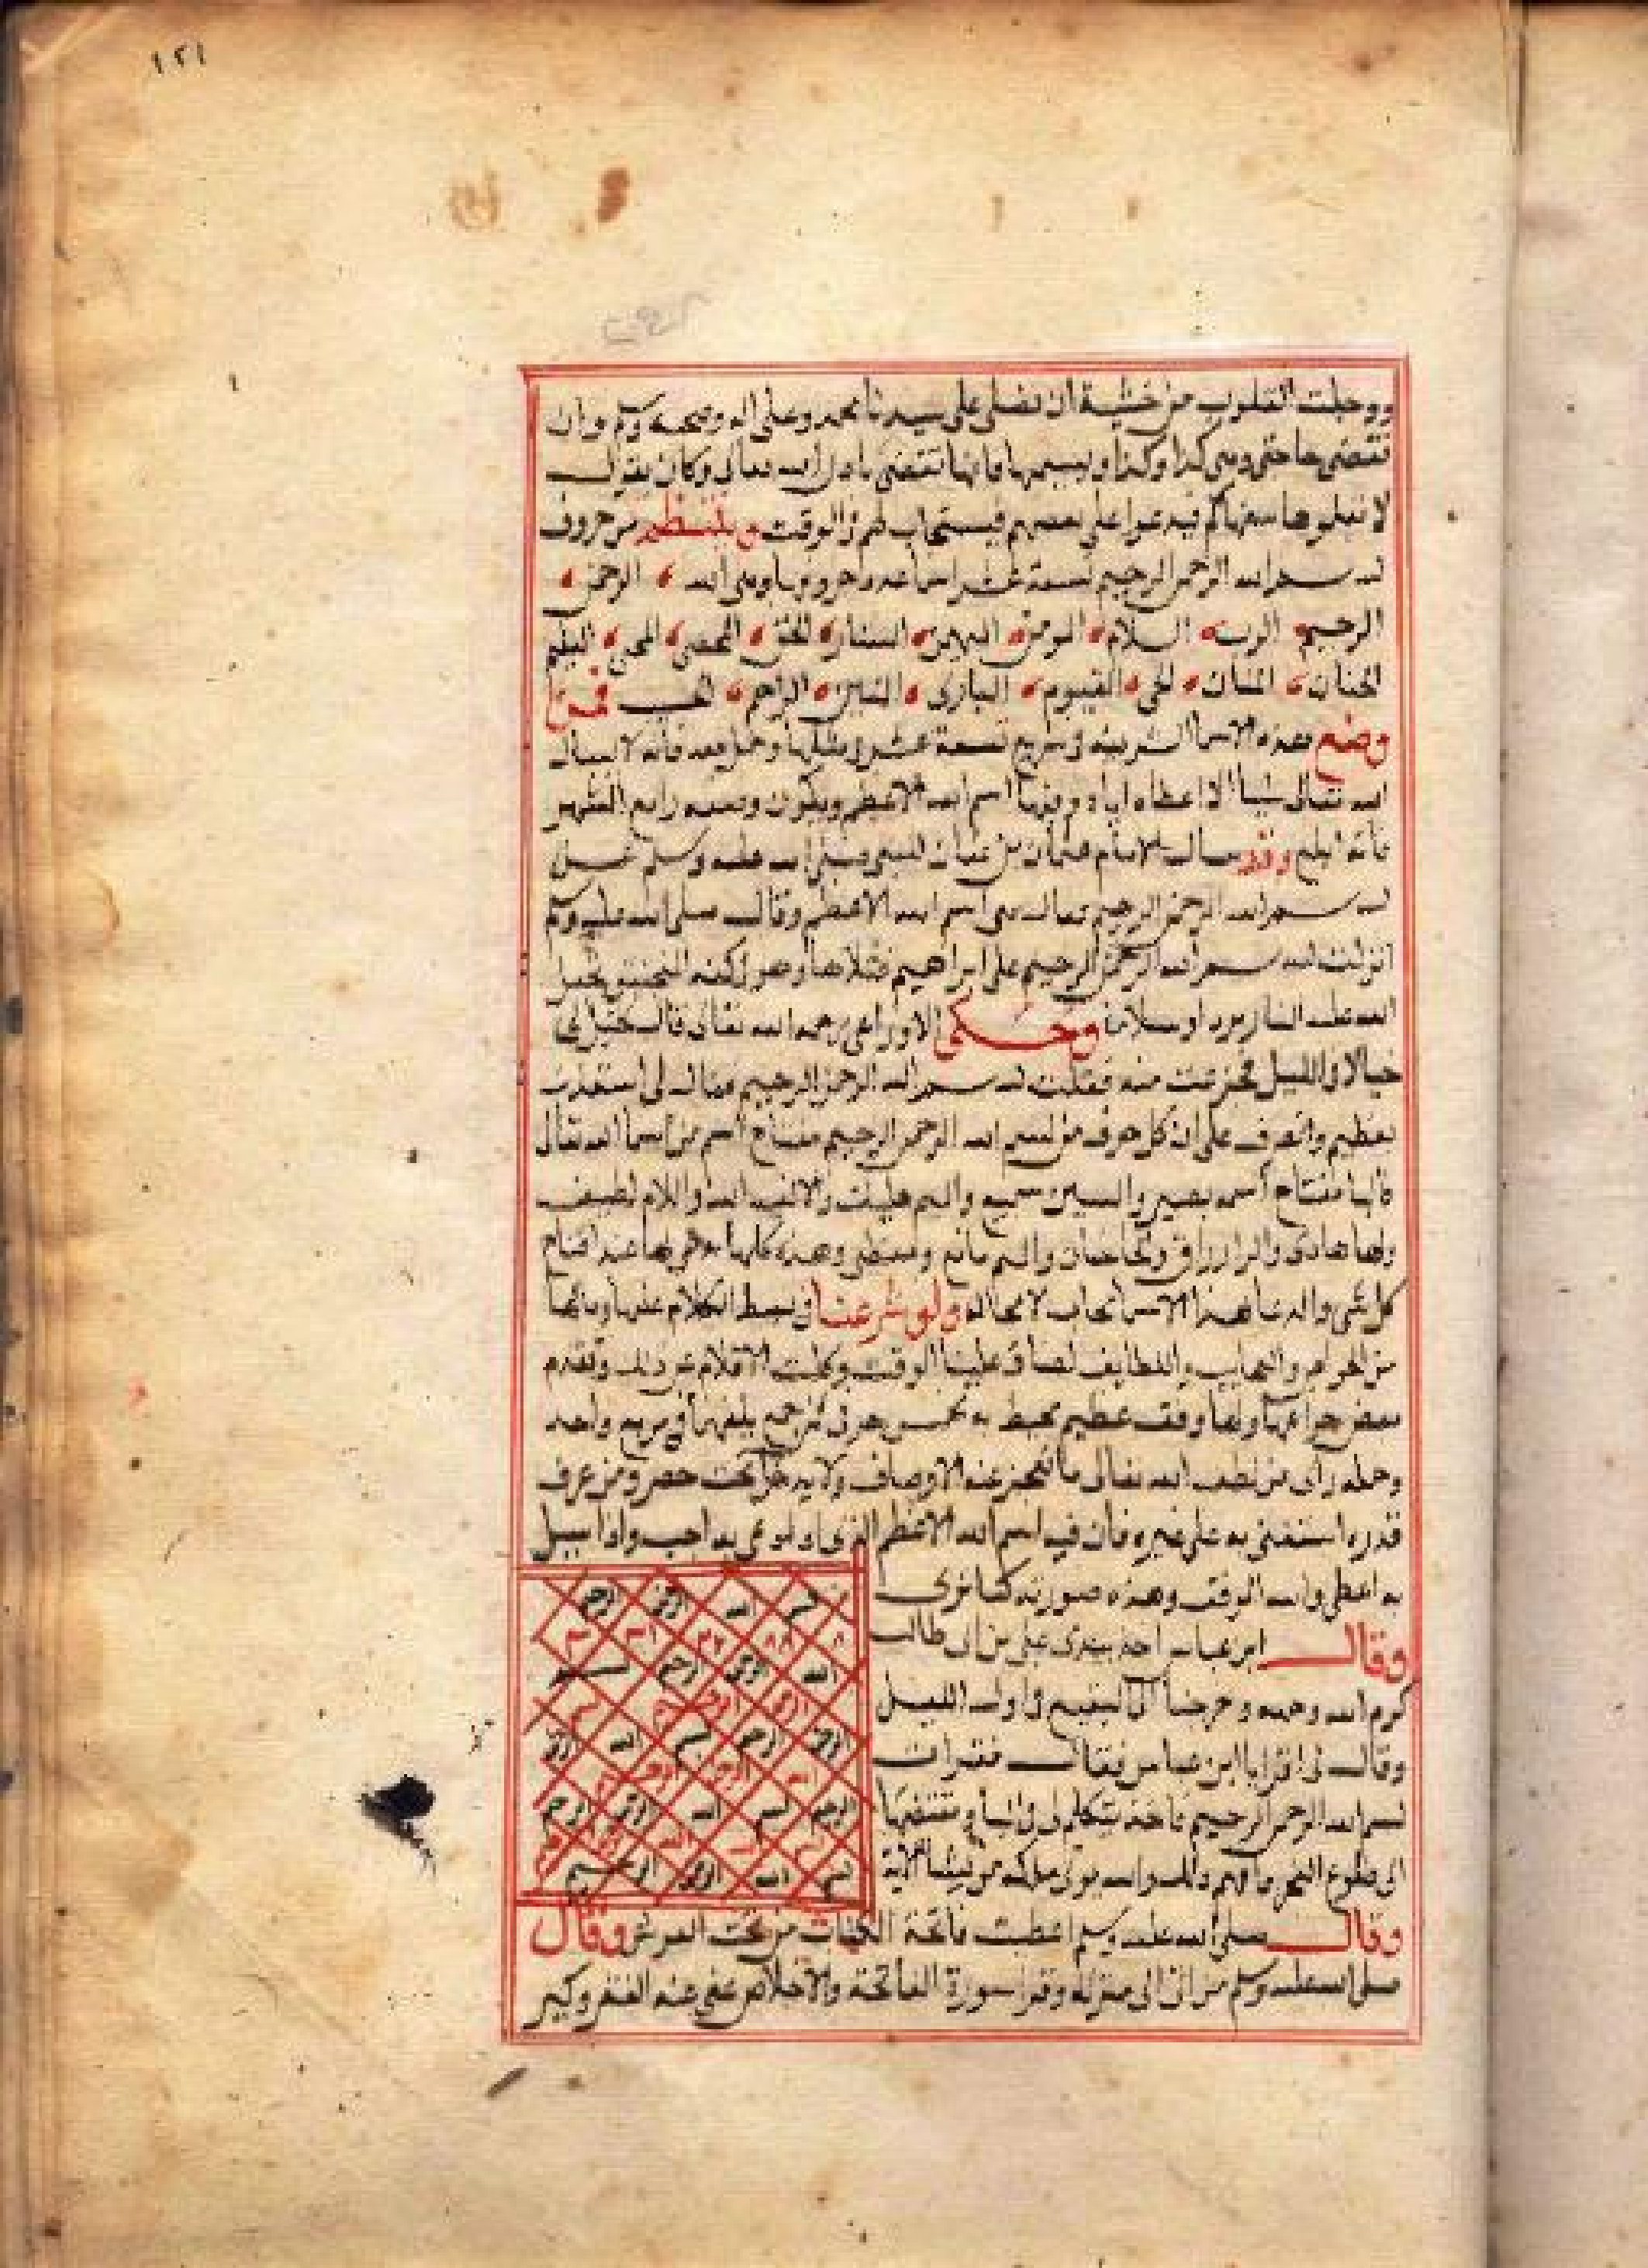 ١٢١
ووجلت القلوب من خشية ان تصلى على سيدنا محمد وعلى اله وصحبه وسلم وان
تقضى حاجتى وهى كذا وكذا ويسميها فانها تقضى باذن الله تعالى وكان يقول
لا تعلموها سفهاكم فيدعوا على بعضهم فيستجاب لهم فى الوقت وينتظم من حروف
بسم الله الرحمن الرحيم تسعة عشر اسما عدد احروفها وهى الله الرحمن
الرحيم الرب السلام المومن المهيمن الستار الحق المحصى المحيى العليم
الحنان المنان الحى القيوم البارى المبين الراحم المجيب فمن
وضع هذه الاسما الشريفة فى مربع تسعة عشر فى مثلها وحمل معه فانه لا يسال
الله تعالى شيأ الا اعطاه اياه وفيها اسم الله الاعظم ويكون وضعه رابع الشهر
فانه ابلغ وقد سال الامام عثمان بن عفان النبى صلى الله عليه وسلم عن
بسم الله الرحمن الرحيم فقال هى اسم الله الاعظم وقال صلى الله عليه وسلم
انزلت بسم الله الرحمن الرحيم على ابراهيم فتلاها وهو فى كفة المنجنيق فجعل
الله عليه النار بردا وسلاما وحكى الاوزاعى رحمه الله تعالى قال تخيل لى
خيالا فى الليل فجزعت منه فقلت بسم الله الرحمن الرحيم فقال لى استعذت
بعظيم وانصرف على ان كل حرف من بسم الله الرحمن الرحيم مفتاح اسم من اسما الله تعالى
فالبا مفتاح اسمه بصير والسين سميع والميم مليك والالف الله واللام لطيف
والها هادى والرا رزاق والحا حنان والميم مانع ومعطى وهذه كلها
كل شى والدعا بهذا الاسم يجاب لا محالة ولو شرعنا فى بسط الكلام عليها وما فيها
من الخواص والعجايب واللطايف لضاق علينا الوقت وكلت الاقلام عن ذلك وتقدم
بعض خواصها ولها وفق عظيم محيط به مخمس حرفى ممزوج بلفظها فى مربع واحد
وحمله راى من لطف الله تعالى ما تعجز عنه الاوصاف ولا يدخل تحت حصر ومن عرف
قدره استغنى به على غيره فان فيه اسم الله الاعظم الذى اذا دعى به اجيب واذا سيل
به اعطى والله الموفق وهذه صورته كما ترى
وقال ابن عباس اخذ بيدى على بن ابى طالب
كرم الله وجهه وخرجنا الى البقيع فى اول الليل
وقال لى اقرا يا ابن عباس فقال فقرات
بسم الله الرحمن الرحيم فاخذ يتكلم لى فى البا
الى طلوع الفجر فافهم ذلك والله يوتى ملكه من يشا الاية
بسم الله الرحمن الرحيم
الله الرحمن الرحيم بسم
الرحمن الرحيم بسم الله
الرحيم بسم الله الرحمن الرحيم
بسم الله الرحمن الرحيم
وقال صلى الله عليه وسلم اعطيت فاتحة الكتاب من تحت العرش وقال
صلى الله عليه وسلم من اتى الى منزله وقرا سورة الفاتحة والاخلاص نفى عنه الفقر وكثر